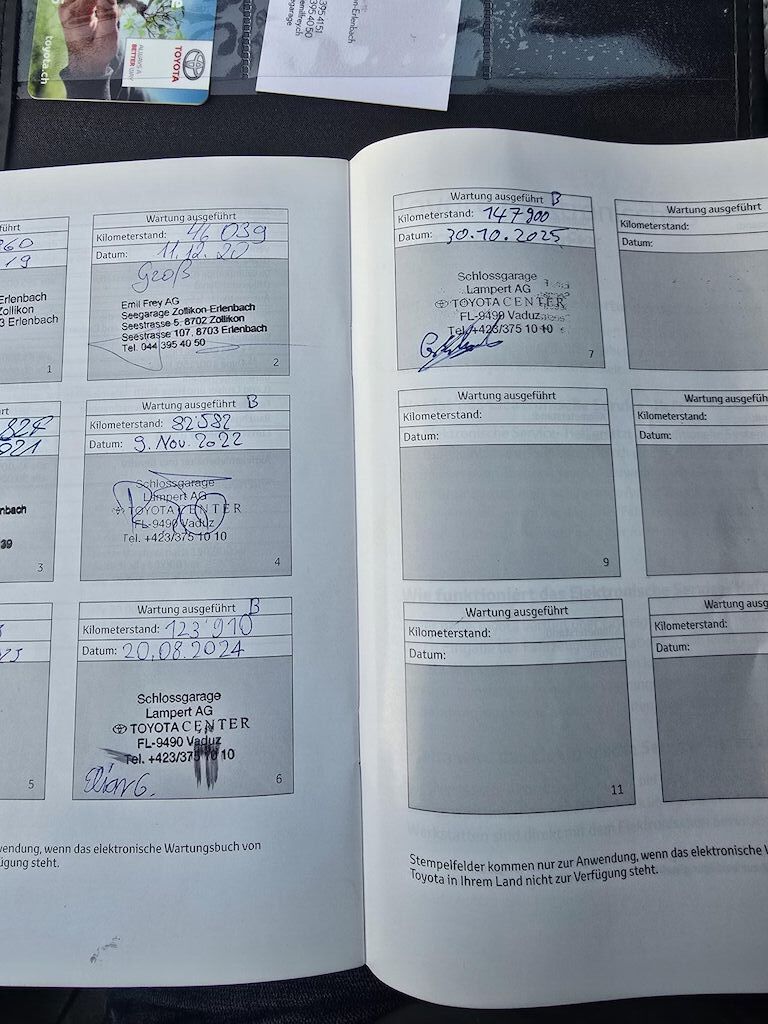 toyota.ch
ALWAYS A
BETTER WAY
TOYOTA
395 4151
395 40 50
milfrey.ch
garage
on-Erlenbach
führt
260
19
Erlenbach
Zollikon
3 Erlenbach
1
Wartung ausgeführt
Kilometerstand: 44 039
Datum: 11.12.20
Groß
Emil Frey AG
Seegarage Zollikon-Erlenbach
Seestrasse 5, 8702 Zollikon
Seestrasse 107, 8703 Erlenbach
Tel. 044 395 40 50
2
hrt
827
021
nbach
39
3
Wartung ausgeführt B
Kilometerstand: 82582
Datum: 9. Nov. 2022
Schlossgarage
Lampert AG
TOYOTA CENTER
FL-9490 Vaduz
Tel. +423/375 10 10
4
5
Wartung ausgeführt B
Kilometerstand: 123'910
Datum: 20.08.2024
Schlossgarage
Lampert AG
TOYOTA CENTER
FL-9490 Vaduz
Tel. +423/375 10 10
6
wendung, wenn das elektronische Wartungsbuch von
ügung steht.
Wartung ausgeführt B
Kilometerstand: 147900
Datum: 30.10.2025
Schlossgarage
Lampert AG
TOYOTA CENTER
FL-9490 Vaduz
Tel. +423/375 10 10
7
Wartung ausgeführt
Kilometerstand:
Datum:
Wartung ausgeführt
Kilometerstand:
Datum:
9
Wartung ausgefüh
Kilometerstand:
Datum:
Wartung ausgeführt
Kilometerstand:
Datum:
11
Wartung ausg
Kilometerstand:
Datum:
Stempelfelder kommen nur zur Anwendung, wenn das elektronische W
Toyota in Ihrem Land nicht zur Verfügung steht.